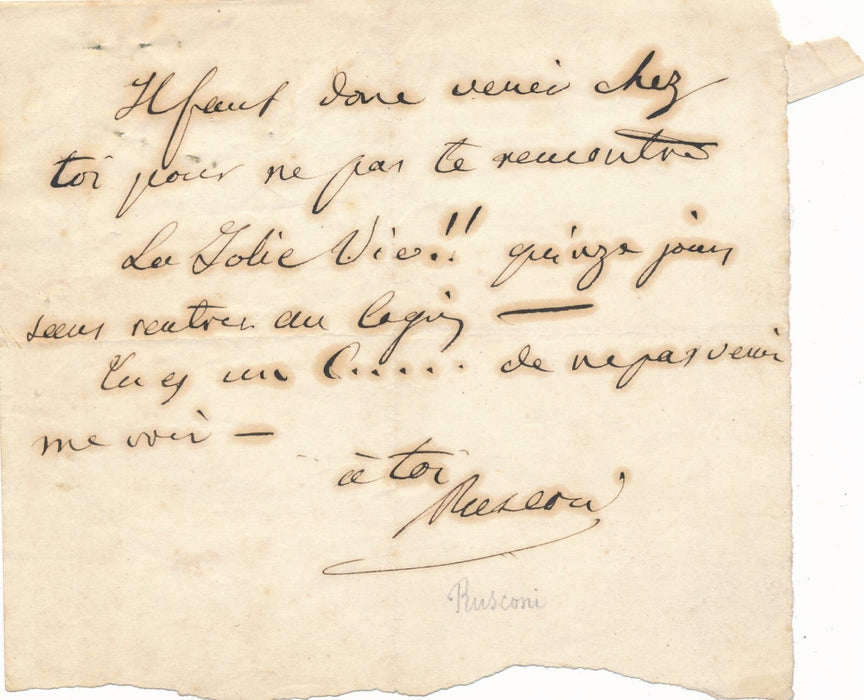 Il faut donc venir chez
toi pour ne pas te rencontrer
La Jolie Vie!! quinze jours
sans rentrer au logis —
Tu es un C..... de ne pas venir
me voir —
à toi
Rusconi
Rusconi